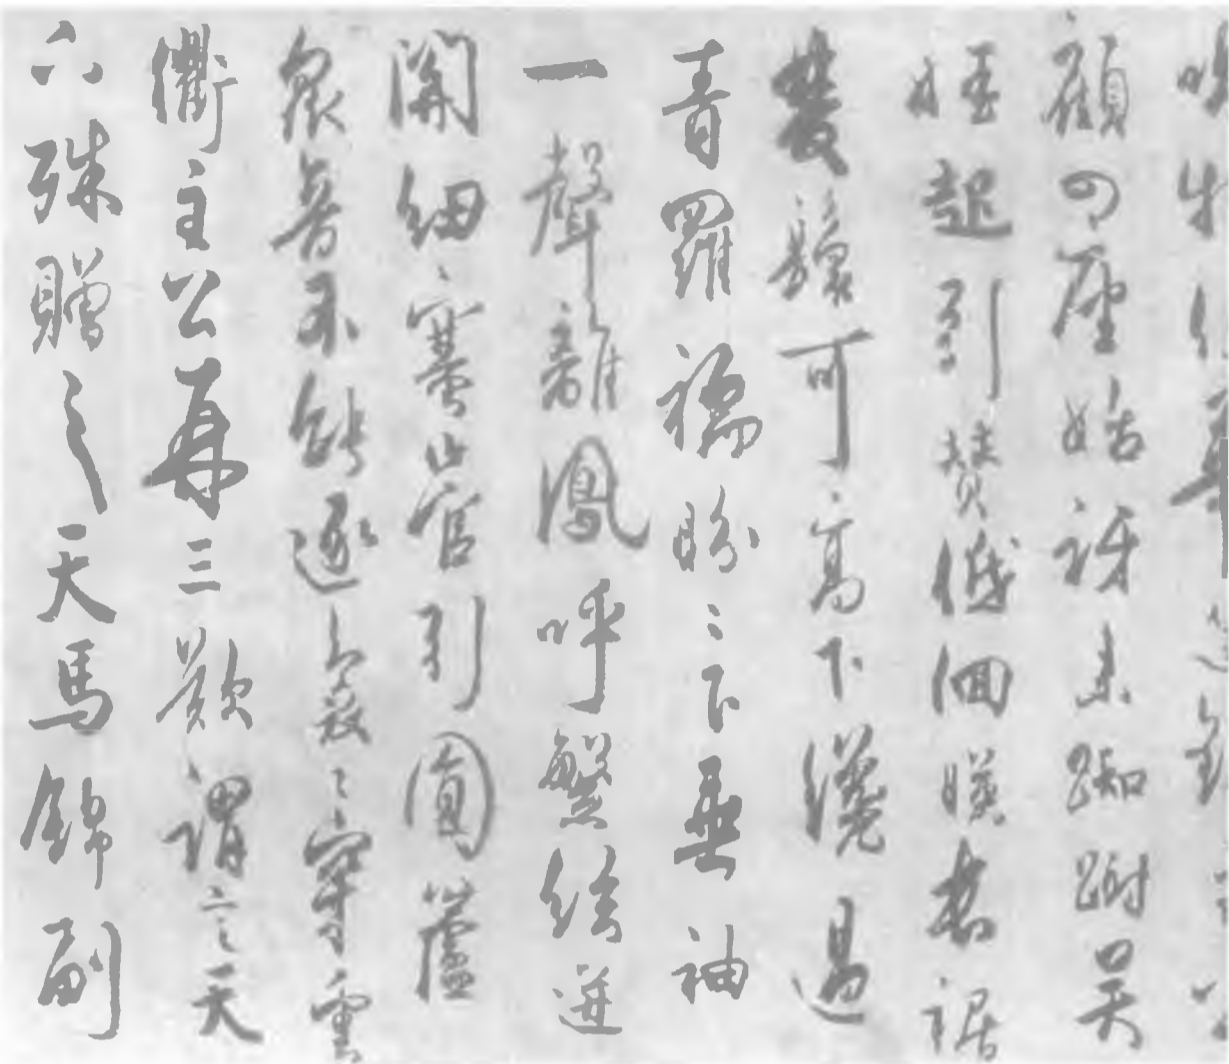 顧四座始訝來踟躕吳
娃起引贊低佪映長裾
雙鬟可高下纔過
青羅襦盼〻下垂袖
一聲離鳳呼繁絃迸
關紐塞管引圓蘆
眾音不能逐裊〻穿雲
衢主公再三歎謂言天
下殊贈之天馬錦副